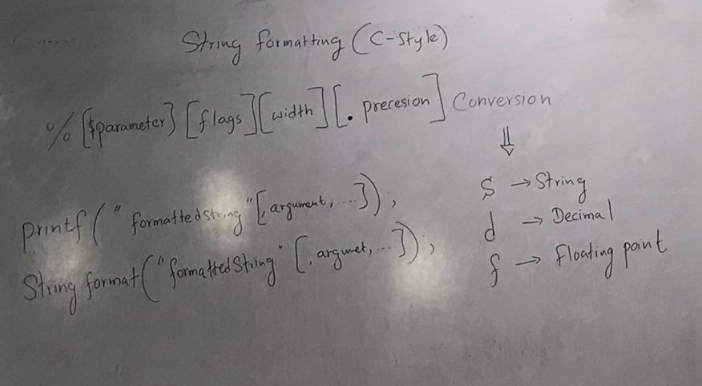 String formatting (C-Style)
% [$parameter] [flags] [width] [. precesion] Conversion
⇓
printf("formattedstring"[,argument, ...]);
String format("formattedString" [,argumet, ...]);
s → String
d → Decimal
f → Floating point